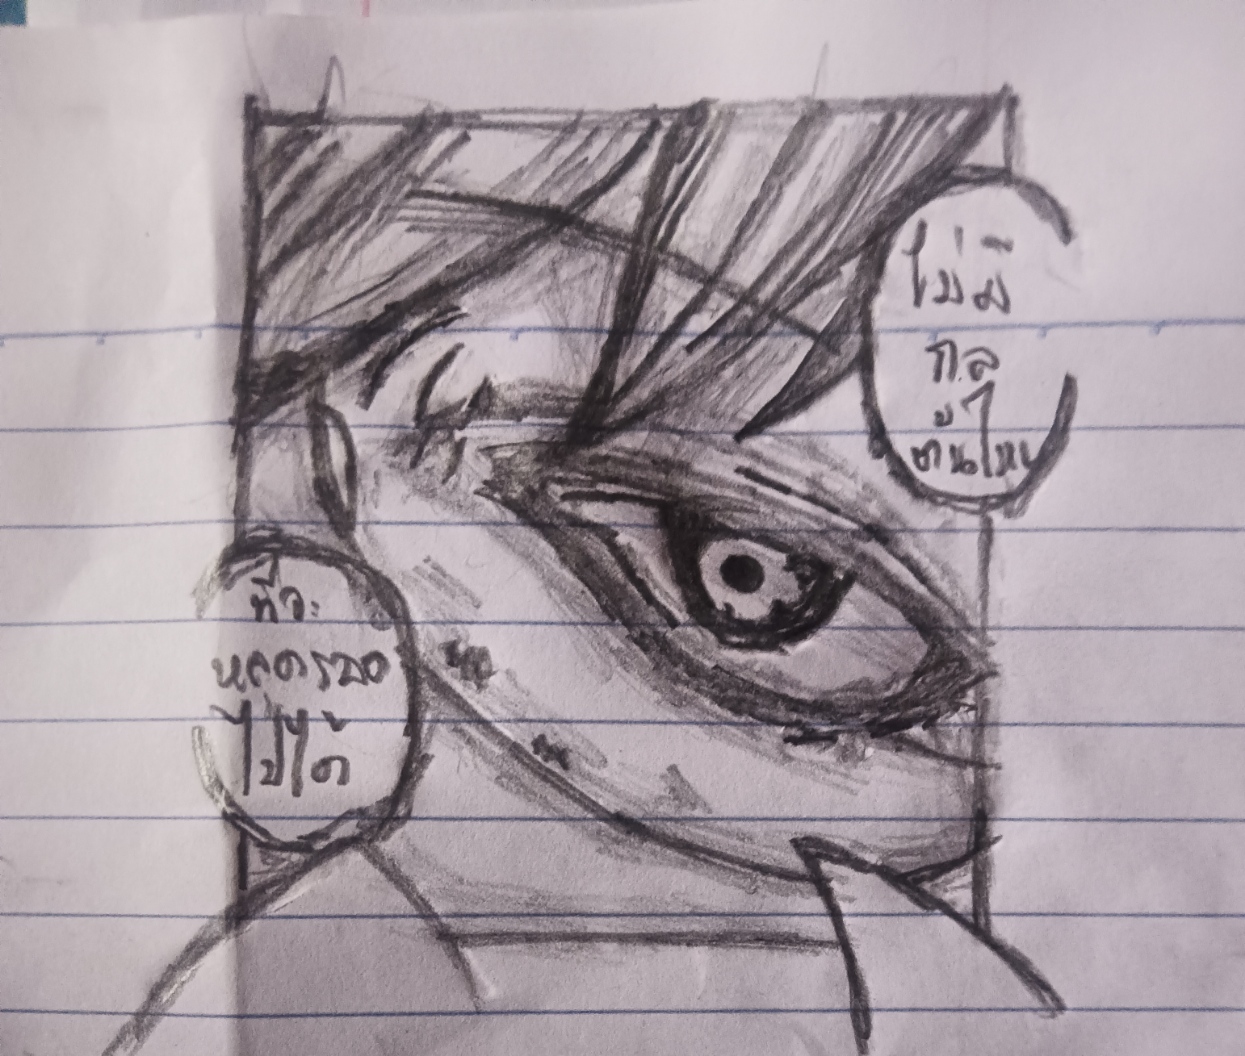 ไม่มี
ก.ล
ขั้นไหน
ที่จะ
หลุดรอด
ไปได้